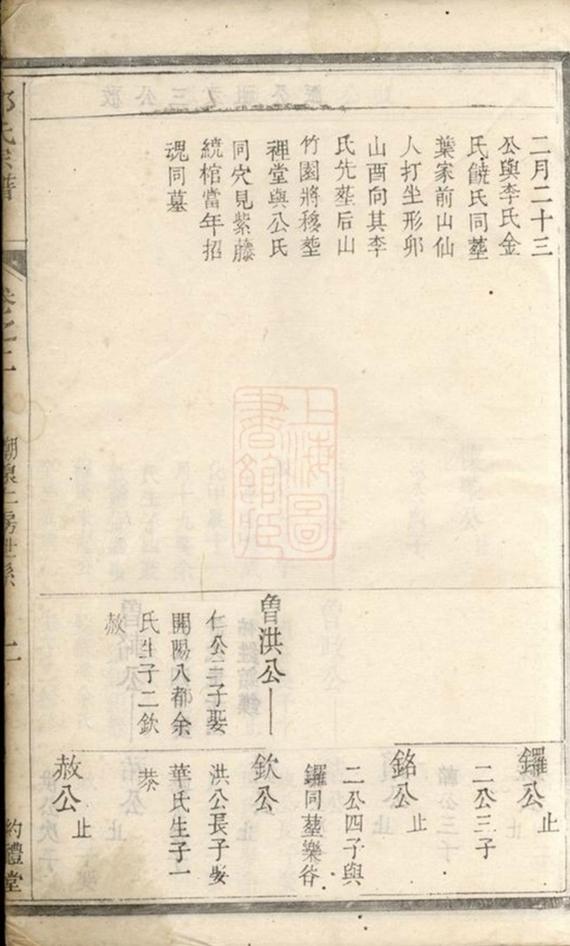 二月二十三
公與李氏金
氏饒氏同塟
葉家前山仙
人打坐形卯
山酉向其李
氏先塟后山
竹園將移塟
裡堂與公氏
同穴見紫藤
繞棺當年招
魂同墓
魯洪公
仁公三子娶
開陽八都余
氏生子二欽
赦
鑼公止
二公三子
銘公止
二公四子與
鑼同塟樂谷
欽公
洪公長子娶
華氏生子一
恭
赦公止
氏宗譜
卷之二
二房世系
約禮堂
上海圖
書館臧